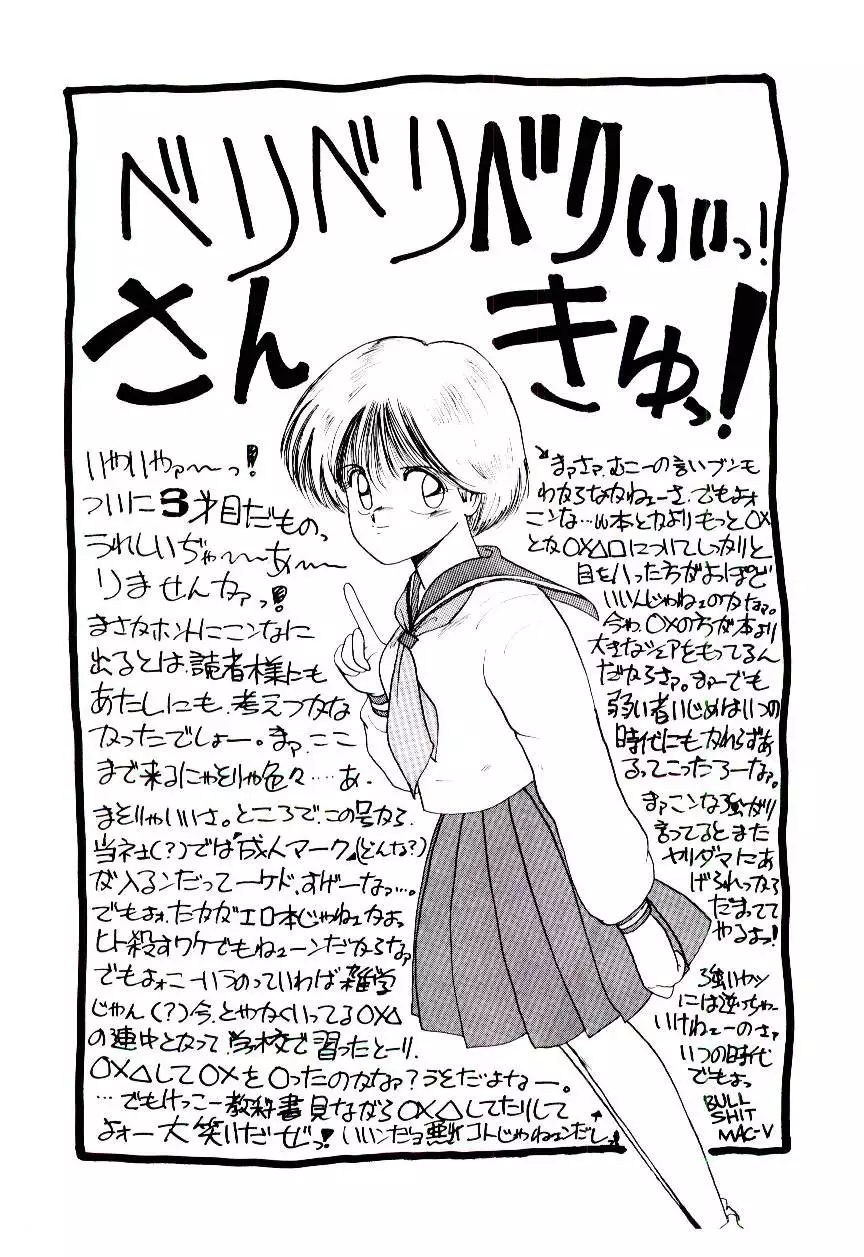 ベリベリベリィィっ!
さんきゅっ!
いやいやァ〜〜っ!
ついに3才目だものっ
うれしいぢゃ〜〜〜あ〜〜
りませんかァっ!
まさかホントにこンなに
出るとは、読者様にも
あたしにも、考えつかな
かったでしょー。まァ、ここ
まで来るにゃそりゃ色々……あ、
まそりゃいいさ。ところで、この号から、
当社(?)では「成人マーク」(どんな?)
が入るンだってーケド、すげーなァ…。
でもよォ、たかがエロ本じゃねェかよっ
ヒト殺すワケでもねェーンだからなァ
でもよォこーいうのっていわば雑学
じゃん(?)今、とやかくいってる○×△
の連中となって、学校で習ったとーり、
○×△して○×を○ったのかなァ?うそだよなー。
…でもけっこー教科書見ながら○×△してたりして
よォー大笑いだぜっ!いいンだョ悪いコトじゃねェンだし
まァさァ、むこーの言いブンも
わからなかねェーさ、でもよォ
こンな…い本とかよりもっと○×
とか○×△□についてしっかりと
目をハった方がよっぽど
いいんじゃねェのかなァ。
今ゃ、○×の方が本より
大きなシェアをもってるん
だからさァ。まァーでも
弱い者いじめはいつの
時代にもかわらずあ
るってこったろーなァ。
まァこンな強がり
言ってるとまた
ヤリダマにあ
げられっから
だまってて
やるよっ!
強いヤツ
には逆っちゃー
いけねェーのさァ
いつの時代
でもよっ
BULL
SHIT
MAC-V